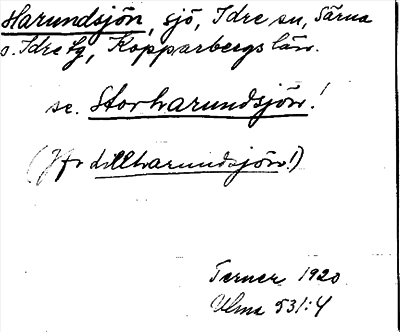 Harundsjön, sjö, Idre sn, Särna
o. Idre tg, Kopparbergs län.
se. Storharundsjön!
(Jfr Lillharundsjön!)
Terner 1920
Ulma 531:4